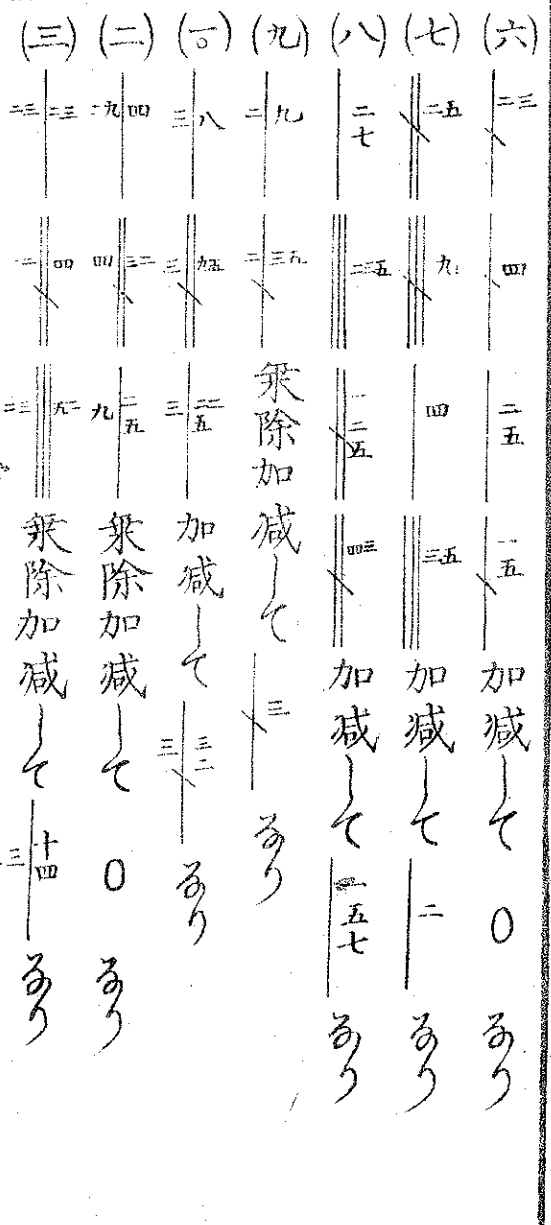 (六) 二三 四 二五 一五 加減して 0 なり
(七) 二五 九 四 三五 加減して 二 なり
(八) 二七 二三五 一二五 四三 加減して 一五七 なり
(九) 二 九 二 三五 乗除加減して 三 なり
(一〇) 三 八 三 九五 三 二二五 加減して 三 三二 なり
(二) 二九 四 四 三二 九 二五 乗除加減して 0 なり
(三) 二三 二三 二 四 二三 九二 乗除加減して 三 十四 なり